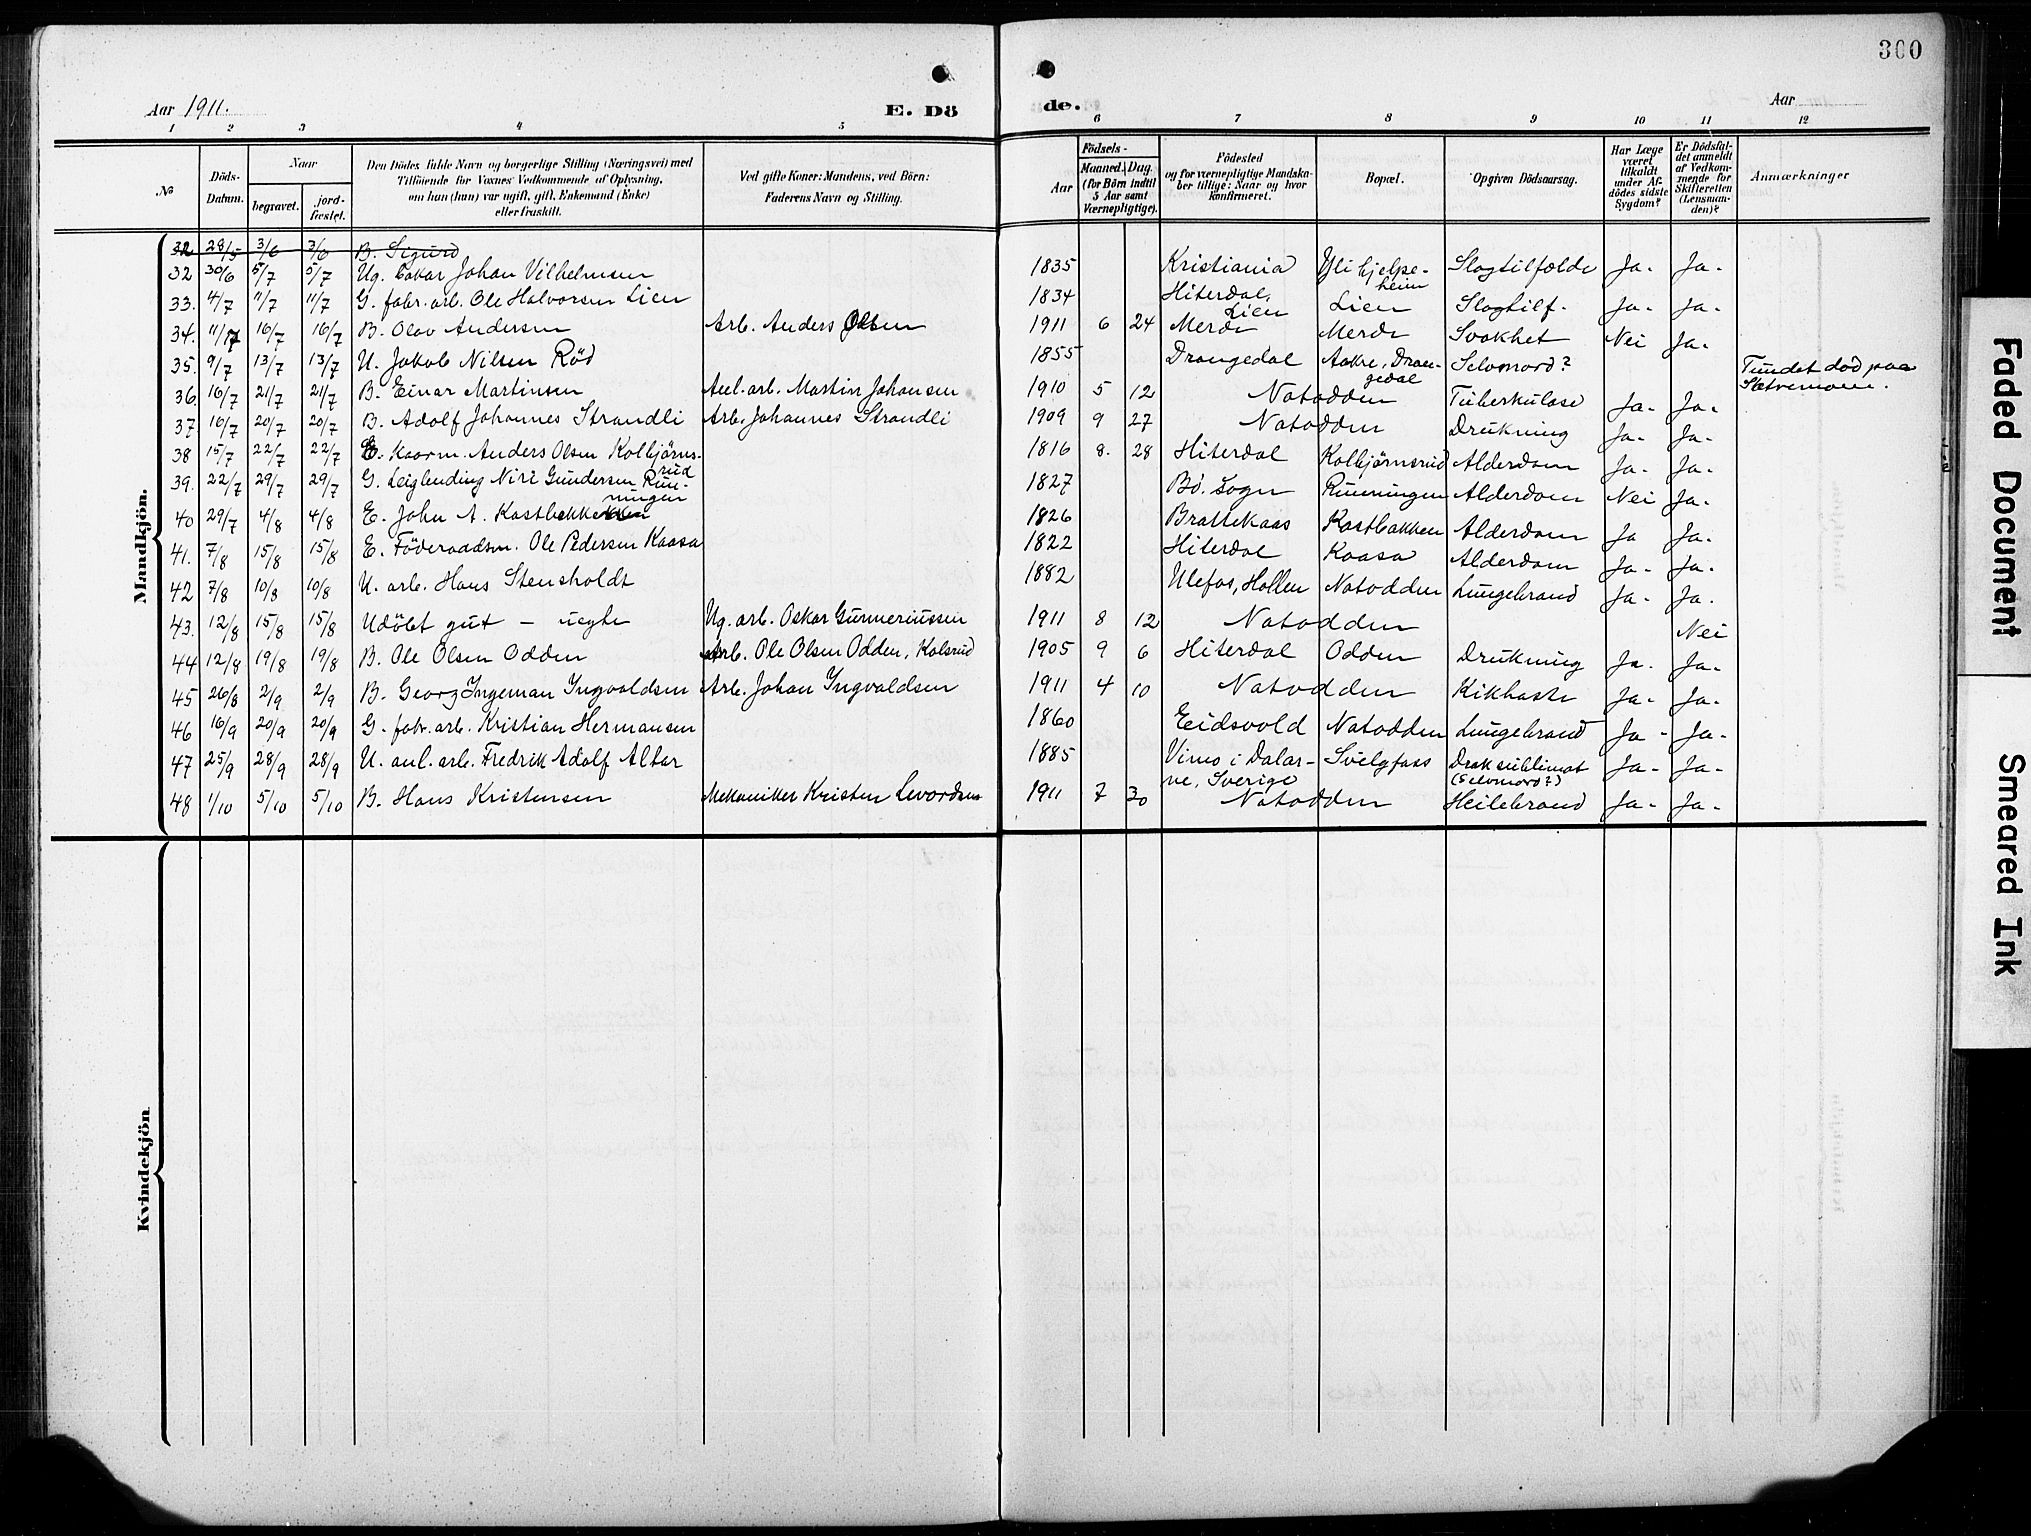 300
Aar 1911.
E. Dö
de.
Aar
1 2 3 4 5 6 7 8 9 10 11 12
No
Döds-Datum.
Naar
begravet.
jord-fæstet.
Den Dödes fulde Navn og borgerlige Stilling (Næringsvei) med
Tilföiende for Voxnes Vedkommende af Oplysning,
om han (hun) var ugift, gift, Enkemand (Enke)
eller fraskilt.
Ved gifte Koner: Mandens, ved Börn:
Faderens Navn og Stilling.
Födsels-
Aar
Maaned. Dag.
(for Börn indtil
5 Aar samt
Værnepligtige).
Födested
og for værnepligtige Mandska-
ber tillige: Naar og hvor
konfirmeret.
Bopæl.
Opgiven Dödsaarsag.
Har Læge
været
tilkaldt
under Af-
dödes sidste
Sygdom?
Er Dödsfal-
det anmeldt
af Vedkom-
mende for
Skifteretten
(Lensman-
den)?
Anmærkninger
Mandkjön.
32 28/5 3/6 3/6 B. Sigurd
32 30/6 5/7 5/7 Ug. Johan Vilhelmsen 1835 Kristiania Yli hjelpe-heim Slagtilfælde Ja- Ja-
33. 4/7 11/7 11/7 G. fabr. arb. Ole Halvorsen Lien 1834 Hiterdal, Lien Lien Slagtilf. Ja- Ja-
34. 11/7 16/7 16/7 B. Olav Andersen Arb. Anders Olsen 1911 6 24 Merde Merde Svakhet Nei Ja-
35. 9/7 13/7 13/7 U. Jakob Nilsen Röd 1855 Drangedal Aakre, Dran-gedal Selvmord? Fundet död paa Sætremoen.
36. 16/7 21/7 21/7 B. Einar Martinsen Anl. arb. Martin Johansen 1910 5 12 Notodden Tuberkulose Ja- Ja-
37. 16/7 20/7 20/7 B. Adolf Johannes Strandli Arb. Johannes Strandli 1909 9 27 Notodden Drukning Ja- Ja-
38 15/7 22/7 22/7 E. Kaarm. Anders Olsen Kolbjörns-rud 1816 8. 28 Hiterdal Kolbjörnsrud Alderdom Ja- Ja-
39. 22/7 29/7 29/7 G. Leiglending Niri Gundersen Run-ningen 1827 Bö. Sogn Runningen Alderdom Nei Ja-
40 29/7 4/8 4/8 E. John A. Kastbakken 1826 Brattekaas Kastbakken Alderdom Ja Ja-
41. 7/8 15/8 15/8 E. Föderaadsm. Ole Pedersen Kaasa 1822 Hiterdal Kaasa Alderdom Ja- Ja-
42 7/8 10/8 10/8 U. arb. Hans Stensholdt 1882 Ulefos, Hollen Notodden Lungebrand Ja- Ja.
43. 12/8 15/8 15/8 Udöbt gut – uegte Ug. arb. Oskar Gunneriussen 1911 8 12 Notodden Nei
44 12/8 19/8 19/8 B. Ole Olsen Odden Arb. Ole Olsen Odden, Kolsrud 1905 9 6 Hiterdal Odden Drukning Ja- Ja-
45 26/8 2/9 2/9 B. Georg Ingeman Ingvaldsen Arb. Johan Ingvaldsen 1911 4 10 Notodden Kikhoste Ja- Ja-
46 16/9 20/9 20/9 G. fabr. arb. Kristian Hermansen 1860 Eidsvold Notodden Lungebrand Ja- Ja-
47 25/9 28/9 28/9 U. anl. arb. Fredrik Adolf Altar 1885 i Dalar-ne, Sverige Svelgfoss Drak sublimat (Selvmord?) Ja- Ja-
48 1/10 5/10 5/10 B. Hans Kristensen Mekaniker Kristen Levordsen 1911 7 30 Notodden Heilebrand Ja- Ja-
Kvindekjön
Faded Document
Smeared Ink